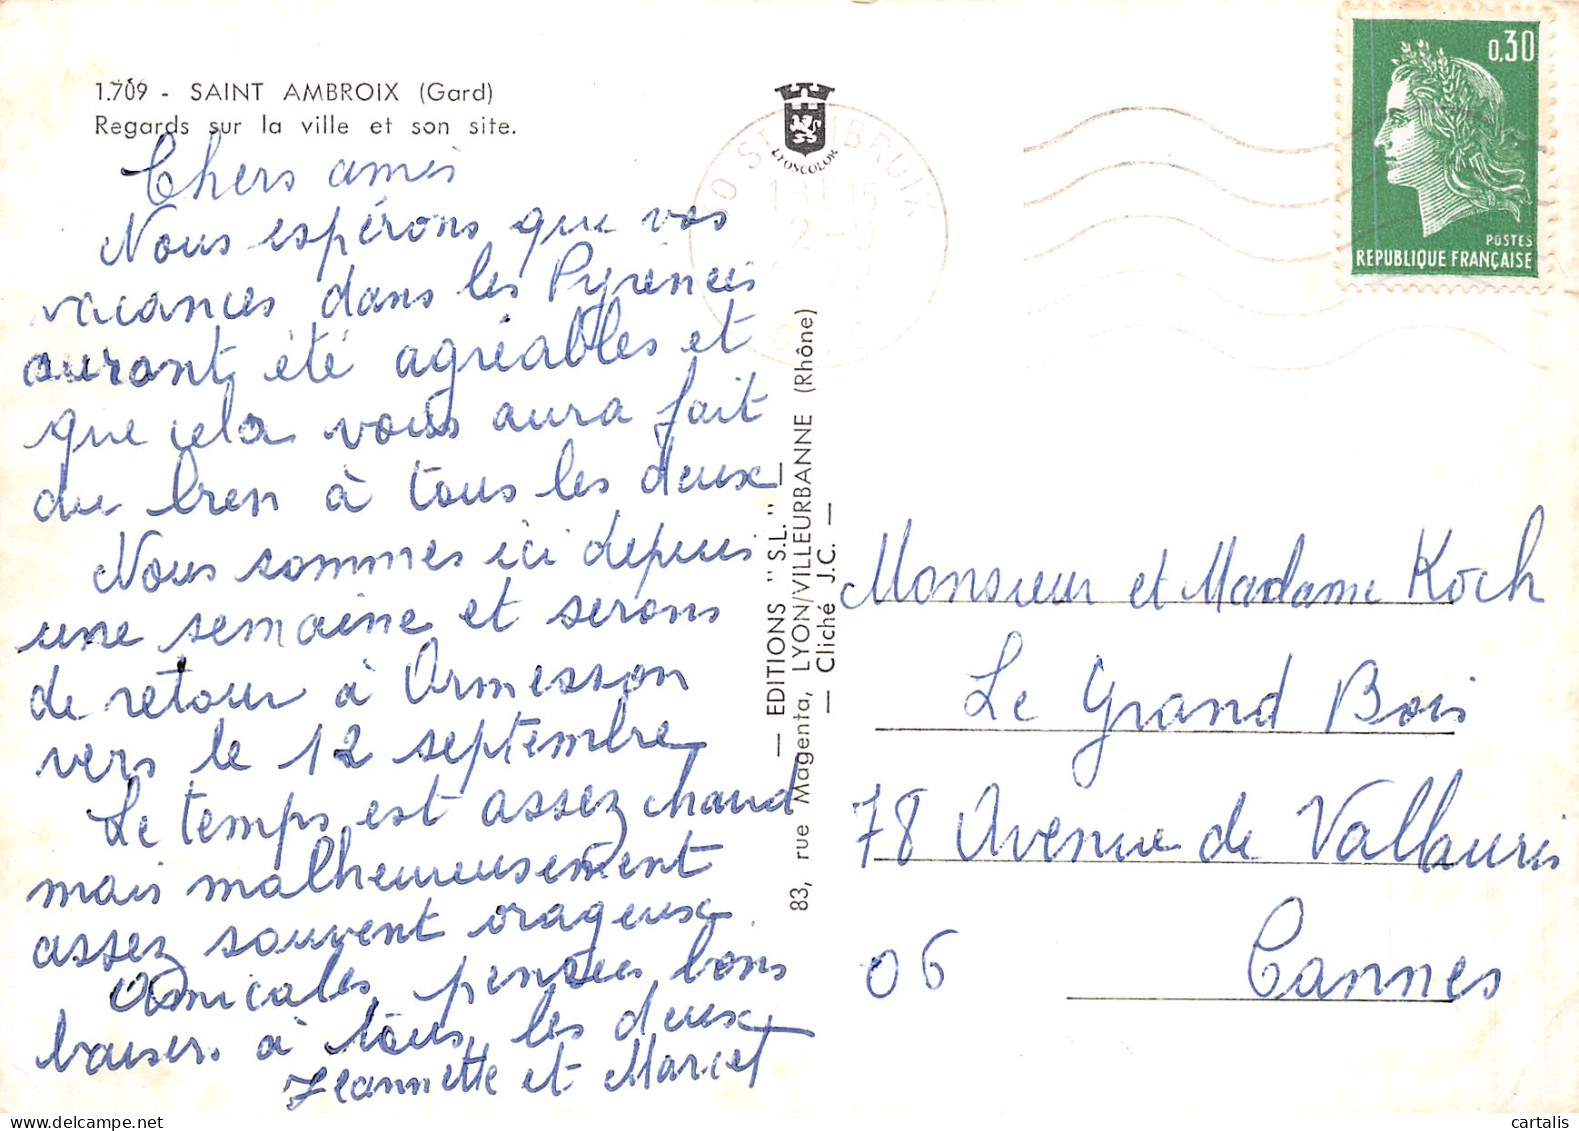 1.709 - SAINT AMBROIX (Gard)
Regards sur la ville et son site.
Chers amis
Nous espérons que vos
vacances dans les Pyrenées
auront été agréables et
que cela vous aura fait
du bien à tous les deux
Nous sommes ici depuis
une semaine et serons
de retour à Ormesson
vers le 12 septembre
Le temps est assez chaud
mais malheureusement
assez souvent orageux.
Amicales pensées bons
baisers à tous les deux
Jeannette et Marcel
LYONCOLOR
— EDITIONS "S.L." —
83, rue Magenta, LYON/VILLEURBANNE (Rhône)
— Cliché J.C. —
30 ST AMBROIX
0,30
POSTES
REPUBLIQUE FRANÇAISE
Monsieur et Madame Koch
Le Grand Bois
78 Avenue de Vallauris
06 Cannes
cartalis